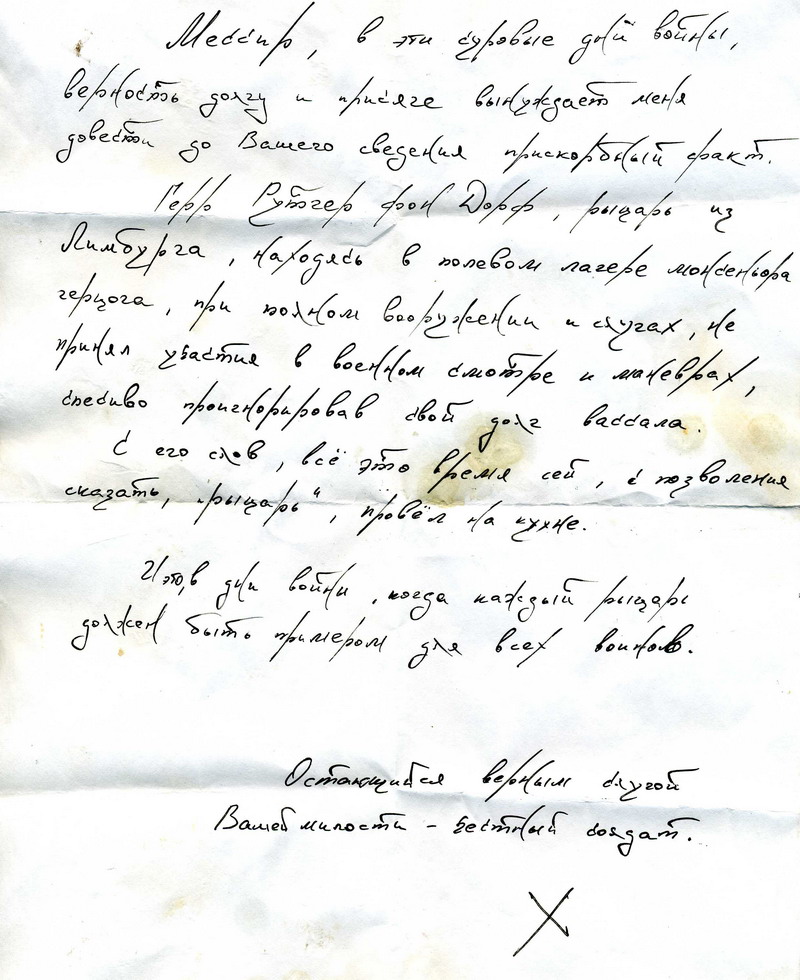 Мессир, в эти суровые дни войны,
верность долгу и присяге вынуждает меня
довести до Вашего сведения прискорбный факт.
Герр Рутгер фон Дорф, рыцарь из
Лимбурга, находясь в полевом лагере монсеньора
герцога, при полном вооружении и слугах, не
принял участия в военном смотре и маневрах,
спесиво проигнорировав свой долг вассала.
С его слов, всё это время сей, с позволения
сказать, "рыцарь", провёл на кухне.
И это, в дни войны, когда каждый рыцарь
должен быть примером для всех воинов.
Остающийся верным слугой
Вашей милости - честный солдат.
X